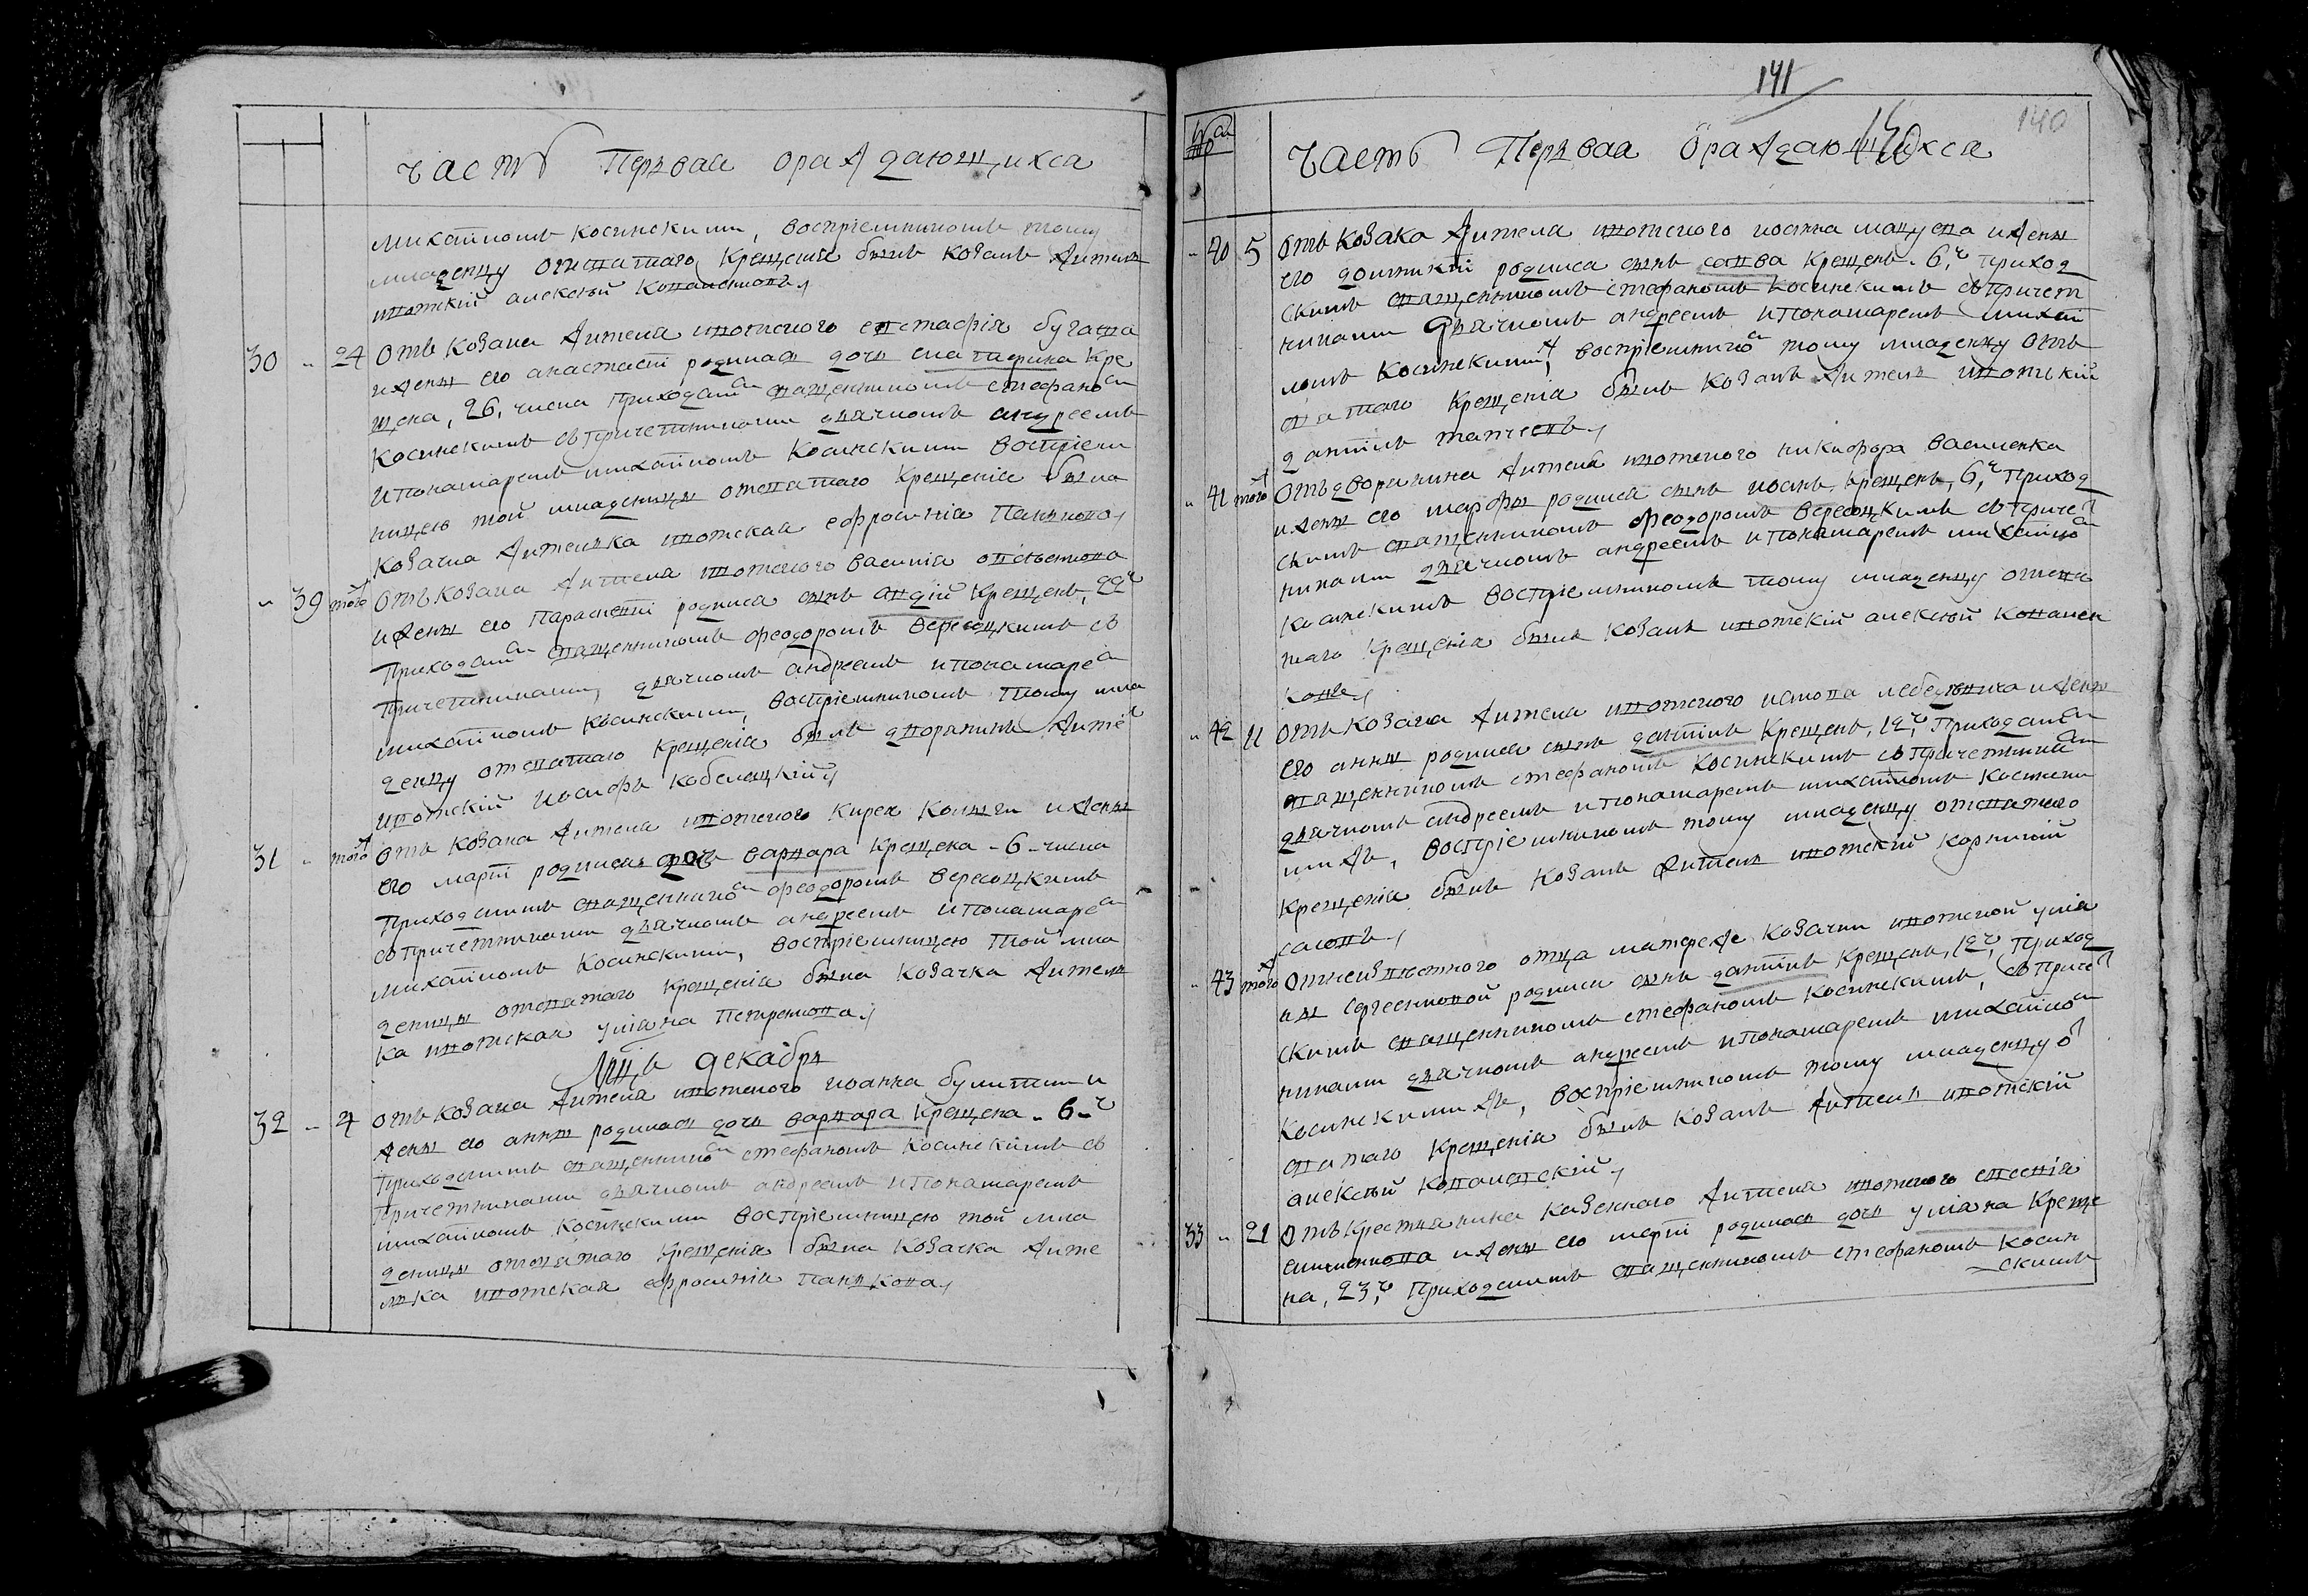 часть Первая ораждающихса
михайломъ косинскими, воспріемникомъ тому
младенцу отсвятаго Крещения былъ козакъ житель
ивотскій алексѣй Ковалснковъ,
30 " 24 Отъ козака жителя ивотского евстафія бугаева
ижены его анастасіи родилась дочь екатафина кре
щена, 26, числа приходским священникомъ стефаном
косинскимъ съ причетниками дьячкомъ андреемъ
ипонамаремъ михайломъ Косинскими воспріем
ницею той младеницы отсвятаго крещенія была
козачка жителька ивотская ефросинія Панькова,
" 39 тогож Отъ козака жителя ивотского василія
ижены его Параскевіи родился сынъ андрій Крещенъ, 22ч
приходским священникомъ феодоромъ вересоцкимъ съ
причетниками, дьячкомъ андреемъ ипонамарем
михайломъ косинскими, воспріемникомъ тому мла
денцу отсвятаго крещенія былъ дворянинъ жител
ивотскій іосифъ кобелацкій,
31 " тогож Отъ козака жителя ивотского Кирея ижены
его марѳи родилась дочь варвара крещена - 6 - числа
приходскимъ священником феодоромъ вересоцкимъ
съ причетниками дьячкомъ андреемъ ипонамарем
михайломъ косинскими, воспріемницею той мла
деницы отсвятаго крещенія была козачка житель
ка ивотская уліана Петренкова,
Мцъ декабря
32 " 4 Отъ козака жителя ивотского іоанна и
жены его анны родилась дочь варвара крещена - 6 - ч
приходскимъ священником стефаномъ косинскимъ съ
причетниками дьячкомъ андреемъ ипонамаремъ
михайломъ косинскими воспріемницею той мла
деницы отсвятаго крещенія была козачка жите
лька ивотская ефросинія панькова,
141
140
140
часть Первая ораждающихса
" 40 5 Отъ Козака жителя ивотского іоанна мацуева ижены
его домникіи родился сынъ савва крещенъ 6,ч приход
скимъ священникомъ стефаномъ косинскимъ съпричет
никами дьячкомъ андреемъ ипонамаремъ михай
ломъ косинскимиж, воспріемником тому младенцу отъ
святаго крещенія былъ козакъ житель ивотскій
даніилъ
" 41 тогож Отъдворянина жителя ивотского никифора василенка
ижены его марфы родился сынъ іоанъ крещенъ, 6,ч приход
скимъ священникомъ феодоромъ вересоцкимъ съприче
никами дьячкомъ андреемъ ипонамаремъ михайло
косинскимъ воспріемникомъ тому младенцу отсвя
таго крещенія былъ козакъ ивотскій алексѣй Ковален
ковъ,
" 42 11 Отъ козака жителя ивотского іакова лебедника ижены
его анны родился сынъ даніилъ крещенъ, 12,ч приходским
священникомъ стефаномъ косинскимъ съпричетникам
дьячкомъ андреемъ ипонамаремъ михайломъ косински
мижъ, воспріемникомъ тому младенцу отсвятаго
крещенія былъ козакъ житель ивотскій корнилій
" 43 тогож Отнеизвѣстного отца матережъ козачки ивотской уліа
ны сергеенковой родился сынъ даніилъ крещенъ, 12ч, приход
скимъ священникомъ стефаномъ косинскимъ, съприче
никами дьячкомъ андреемъ ипонамаремъ михайло
косинскимижъ, воспріемникомъ тому младенцу о
святаго крещенія былъ козакъ житель ивотскій
алексѣй
33 " 21 Отъ крестьянина казенного жителя ивотского евсевія
симоненкова ижены его марѳи родилась дочь уліана креще
на, 23,ч приходскимъ священникомъ стефаномъ косин
скимъ